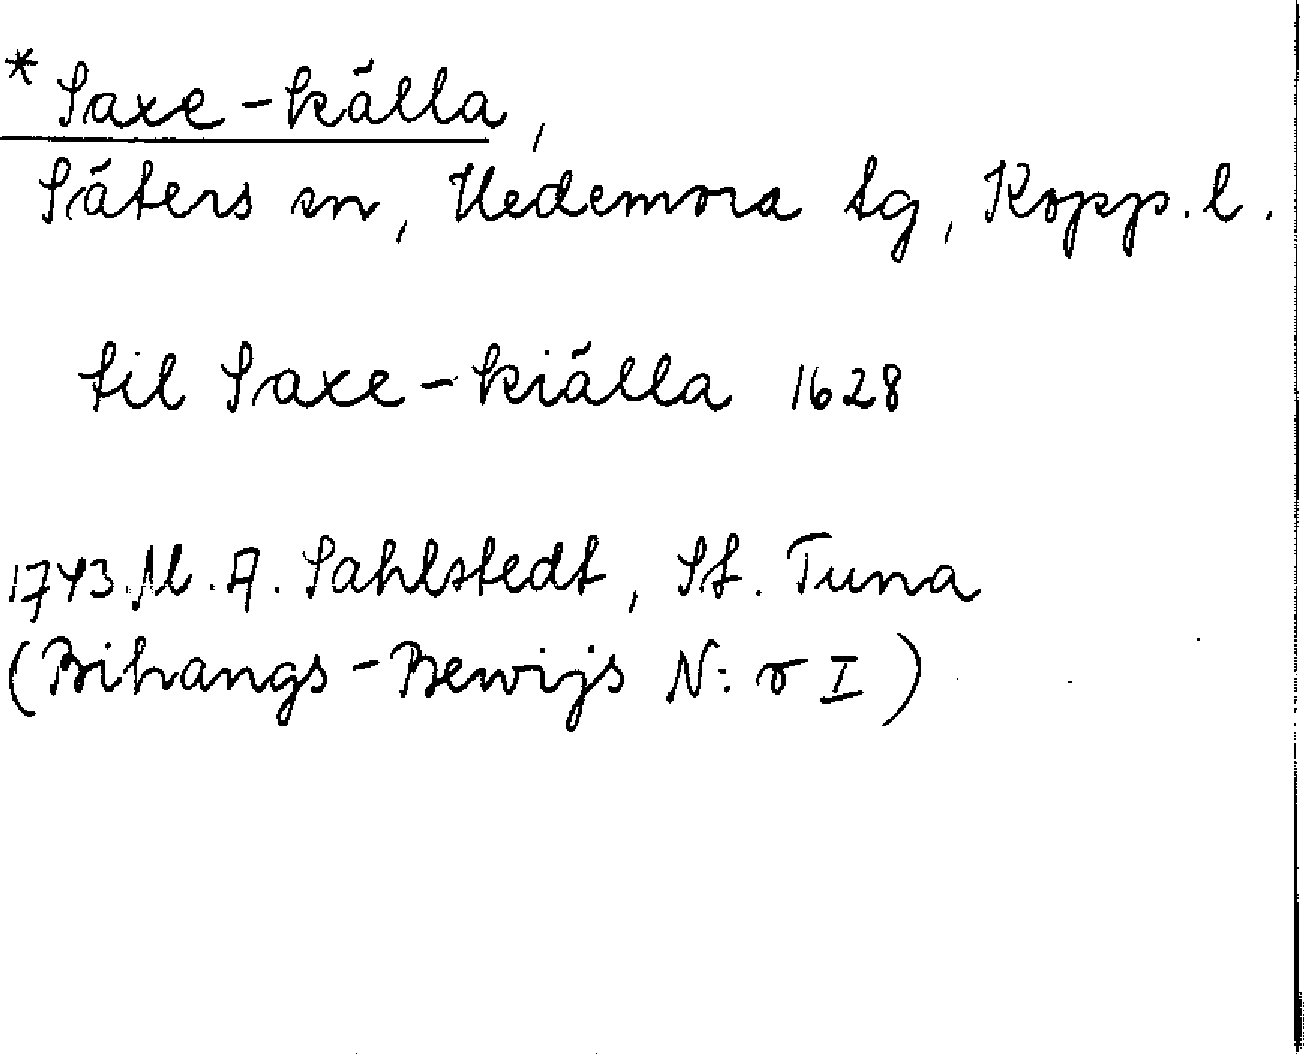 *Saxe-källa,
Säters sn, Hedemora tg, Kopp. l.
til Saxe-kiälla 1628
1743. M. A. Sahlstedt, St. Tuna
(Bihangs-Bewijs N:o I)